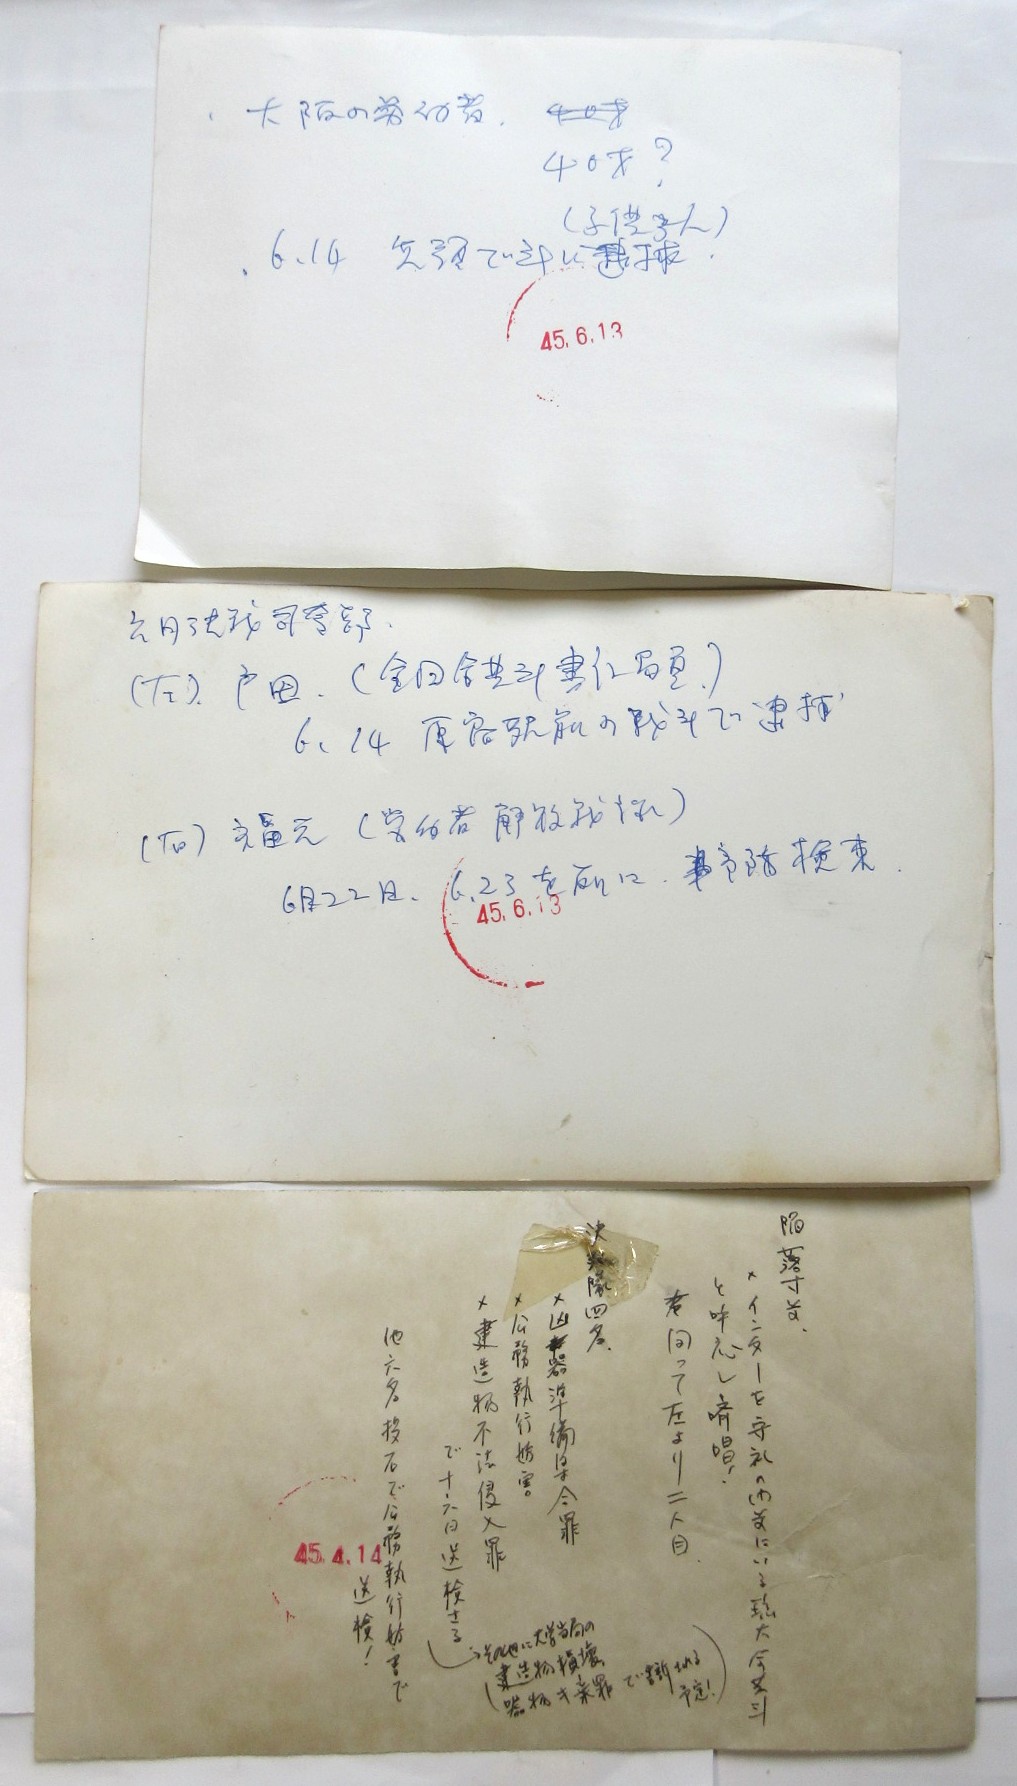 大阪の労仂者. 40才
40才?
(子供3人)
6.14 先頭で斗い逮捕.
45.6.13
六月決戦司令部.
(左). 戸田. (全国全共斗書仁局員.)
6.14 原宿駅前の戦斗で逮捕
(右) 富元 (労仂者解放戦線)
6月22日. 6.23を前に. 予防検束.
45.6.13
陥落寸前.
×インターを守礼の門前にいる琉大全共斗
と呼応し斉唱!
右向って左より二人目.
決死隊四名.
×凶器準備集合罪
×公務執行妨害
×建造物不法侵入罪
で十六日送検さる
その他に大学当局の
建造物損壊
器物キ棄罪 で訴えれる
予定!
他六名投石で公務執行妨害で
送検!
45.4.14